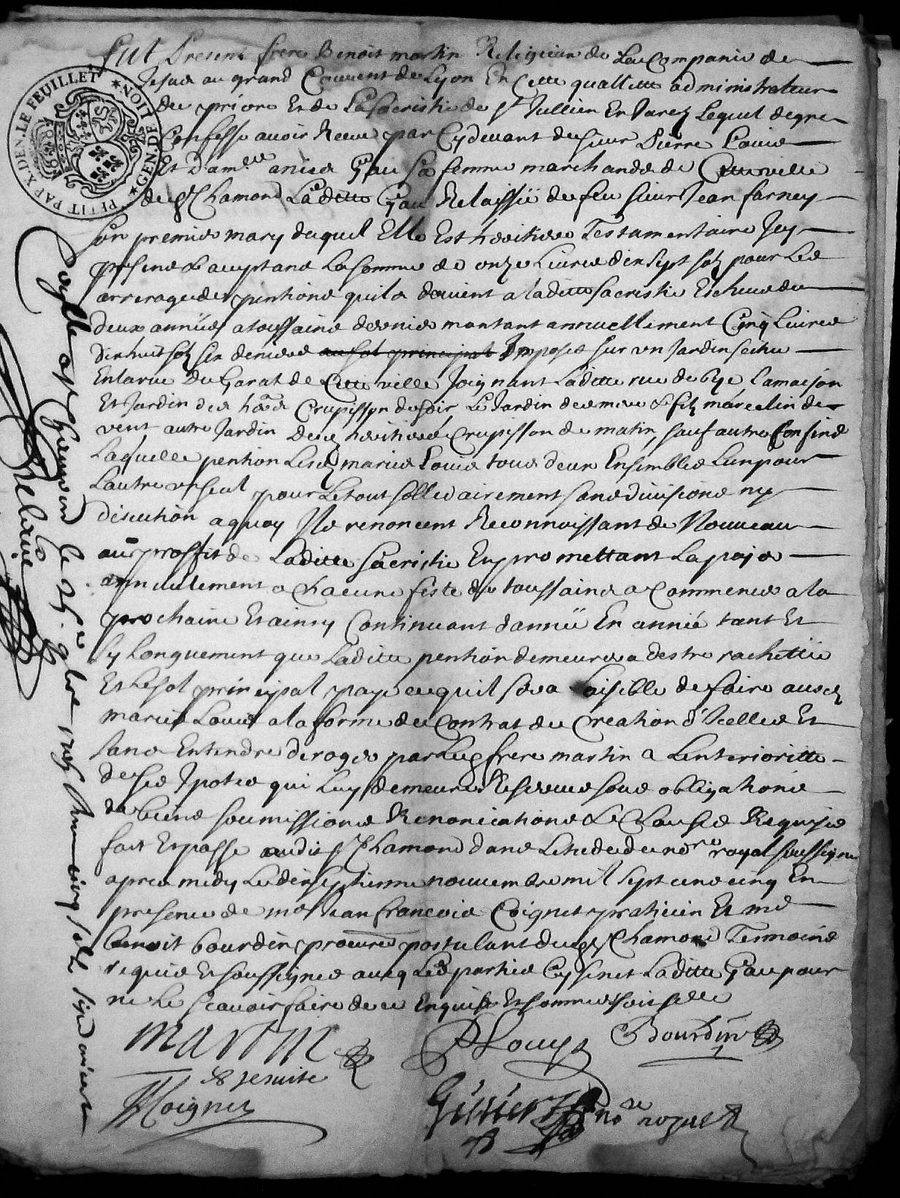 fut Present frere Benoit martin Religieux de La Companie de
Jesus au grand Couvent de Lyon En Cette quallitté administrateur
du prioré Et de La Sacristie de St Jullien En Jarez Lequel de gre
Confesse avoir Receu par Cydevant du sieur Pierre Louis
Et Damlle anisa Gau sa femme marchands de Cette ville
de St Chamond Laditte Gau Relaissée de feu sieur Jean farney
son premier mary duquel Elle Est heritiere Testamentaire Icy
presend & acceptand La somme de onze Livres dix sept solz pour Les
arrerages des pentions quils doivent a laditte sacristie Escheus de
deux années a toussains dernier montant annuellement Cinq Livres
dix huit solz six deniers au sol principal Imposée sur un Jardin scitué
En la rue Du Garat de Cette ville Joignant Laditte rue de bize La maison
Et Jardin des hers Crupisson de soir Le Jardin de & filz marcelin de
vent autre Jardin Des heritiers Crupisson de matin, sauf autre Confins
Laquelle pention Lesd mariés Louis tous deux Ensembles Lun pour
L'autre un seul pour Le tout sollidairement sans division ny
discution a quoy Ils renoncent Reconnoissant de Nouveau
au proffit de Laditte Sacristie En promettant La payer
annuelement a Chacune feste de toussains a Commencer a la
prochaine Et ainsy Continuant d'année En année tant Et
sy Longuement que Laditte pention demeurera destre rachettée
Et Le sol principal payé ce quil sera Loisible de faire ausd
mariés Louis a la forme du Contrat de Creation d'Icelles Et
sans Entendre deroger par Led frere martin a Lenterioritté
de ses Ipoteques qui Luy demeure Reservée sous obligations
de biens soumissions Renonciations & Clauses Requises
fait Et passé audit St Chamond dans Letude du nore royal soussigné
apres midy Le dix septieme novembre mil sept cens cinq En
presence de me Jean François Coignet praticien Et me
Benoit bourdin procureur postulant dud St Chamond Temoins
requis Et soussignés avecq Les parties Cy sinet Laditte Gau pour
ne Le scavoir faire de ce Enquise Et sommée soit Elle
martin
Jesuite
PLouys
Bourdin
JfCoignet
nore royal
le 25e 9bre 1705
PETIT PAP. X DEN. LE FEUILLET * GEN. DE LION *